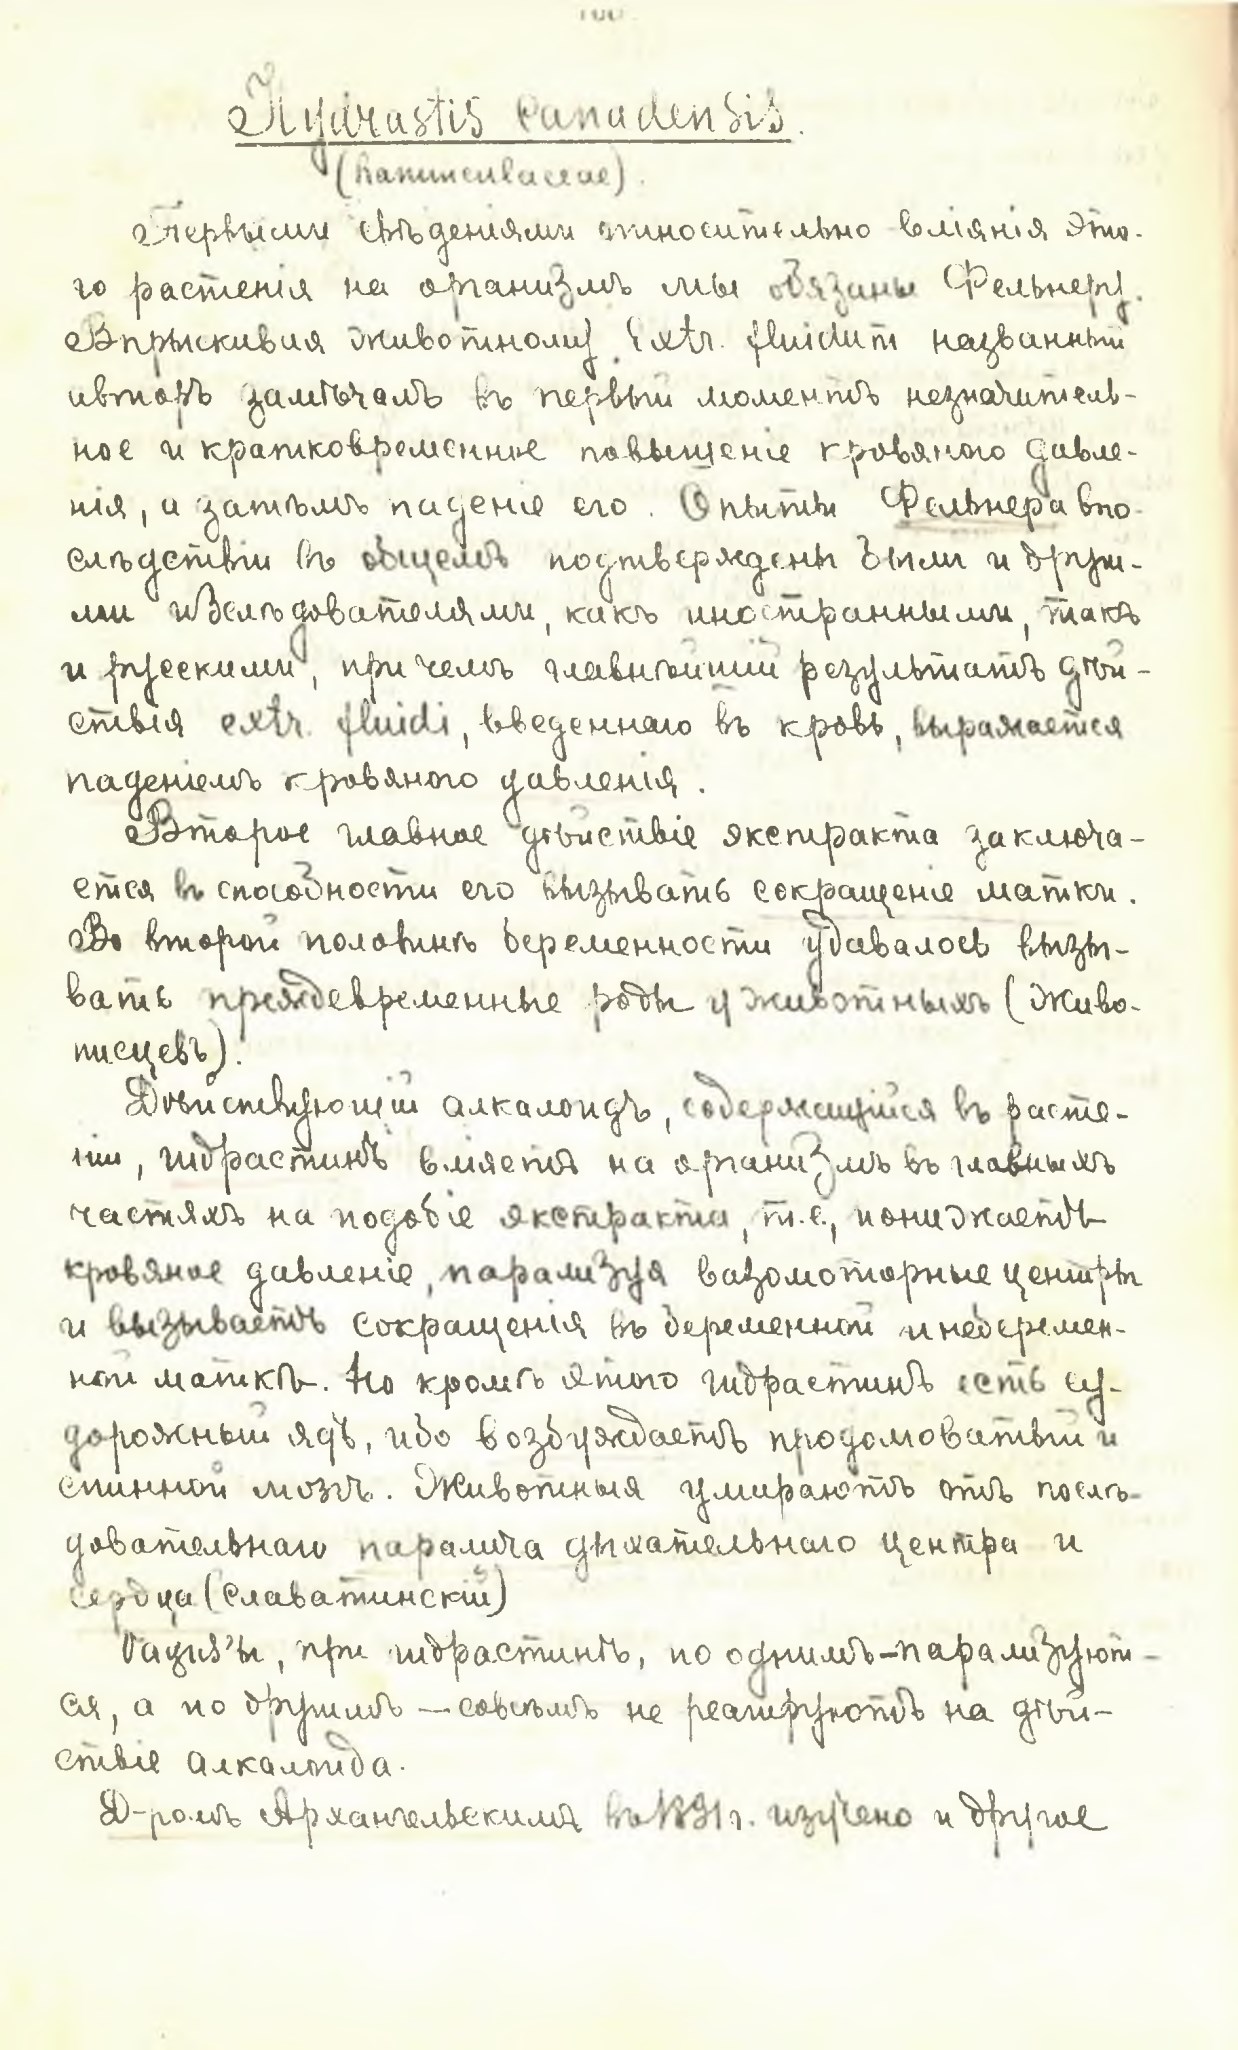 Hydrastis canadensis.
(Ranunculaceae).
Первыми свѣденіями относительно вліянія это-
го растенія на организмъ мы обязаны Фельнеру.
Впрыскивая животному Extr. fluidum названный
авторъ замѣчалъ въ первый моментъ незначитель-
ное и кратковременное повышеніе кровяного давле-
нія, а затѣмъ паденіе его. Опыты Фельнера впо-
слѣдствіи въ общемъ подтверждены были и други-
ми изслѣдователями, какъ иностранными, такъ
и русскими, при чемъ главнѣйшій результатъ дѣй-
ствія extr. fluidi, введеннаго въ кровь, выражается
паденіемъ кровяного давленія.
Второе главное дѣйствіе экстракта заключа-
ется въ способности его вызывать сокращеніе матки.
Во второй половинѣ беременности удавалось вызы-
вать преждевременные роды у животныхъ (Живо-
писцевъ).
Дѣйствующій алкалоидъ, содержащійся въ расте-
ніи, гидрастинъ вліяетъ на организмъ въ главныхъ
частяхъ на подобіе экстракта, т.е., понижаетъ
кровяное давленіе, парализуя вазомоторные центры
и вызываетъ сокращенія въ беременной и неберемен-
ной маткѣ. Но кромѣ этого гидрастинъ есть су-
дорожный ядъ, ибо возбуждаетъ продолговатый и
спинной мозгъ. Животныя умираютъ отъ послѣ-
довательнаго паралича дыхательнаго центра и
сердца (Славатинскій)
Vagus'ы, при гидрастинѣ, по однимъ – парализуют-
ся, а по другимъ — совсѣмъ не реагируютъ на дѣй-
ствіе алкалоида.
Д-ромъ Архангельскимъ въ 1891 г. изучено и другое